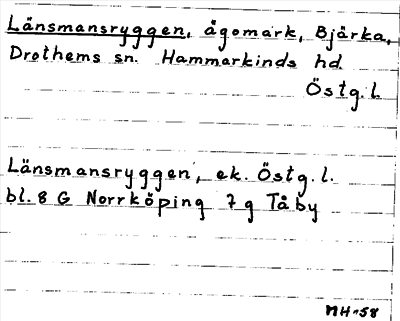 Länsmansryggen, ägomark, Bjärka,
Drothems sn. Hammarkinds hd.
Östg.l.
Länsmansryggen, ek. Östg.l.
bl. 8 G Norrköping 7 g Tåby
MH-58